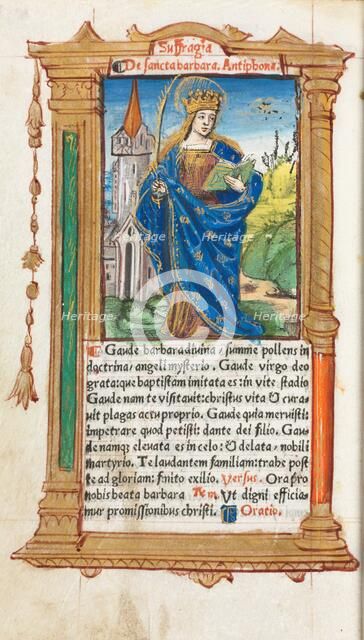 Suffragia
De sancta barbara. Antiphona.
Gaude barbara diuina / summe pollens in
doctrina / angeli mysterio. Gaude virgo deo
grata: que baptistam imitata es: in vite stadio
Gaude nam te visitauit: christus vita & cura-
uit plagas actu proprio. Gaude quia meruisti:
impetrare quod petisti: dante dei filio. Gau-
de namq; eleuata es in celo: & delata / nobili
martyrio. Te laudantem familiam: trahe post
te ad gloriam: finito exilio. Versus. Ora pro
nobis beata barbara Rem. Vt digni efficia-
mur promissionibus christi. Oratio.
Heritage
Heritage
Heritage
Heritage
Heritage
Heritage